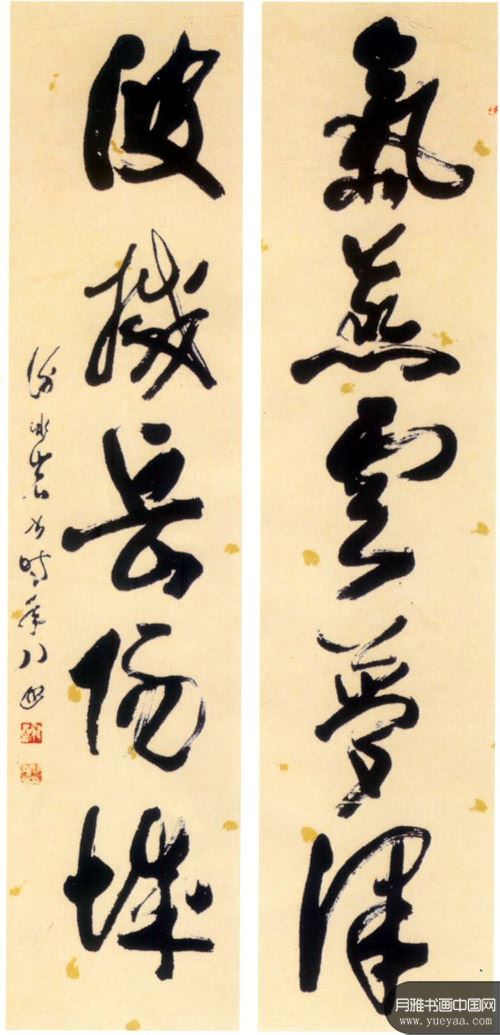 氣蒸雲夢澤
波撼岳陽城
時年八
月雅书画中国网
www.yueyaa.com